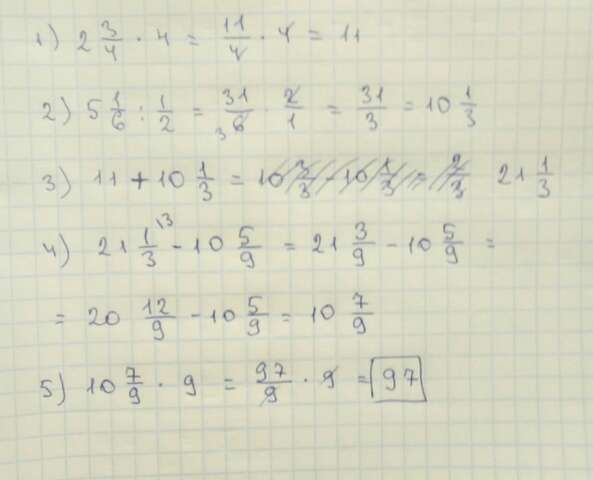 1) 2 3/4 · 4 = 11/4 · 4 = 11
2) 5 1/6 : 1/2 = 31/6 · 2/1 = 31/3 = 10 1/3
3) 11 + 10 1/3 = 21 1/3
4) 21 1/3 - 10 5/9 = 21 3/9 - 10 5/9 =
= 20 12/9 - 10 5/9 = 10 7/9
5) 10 7/9 · 9 = 97/9 · 9 = 97